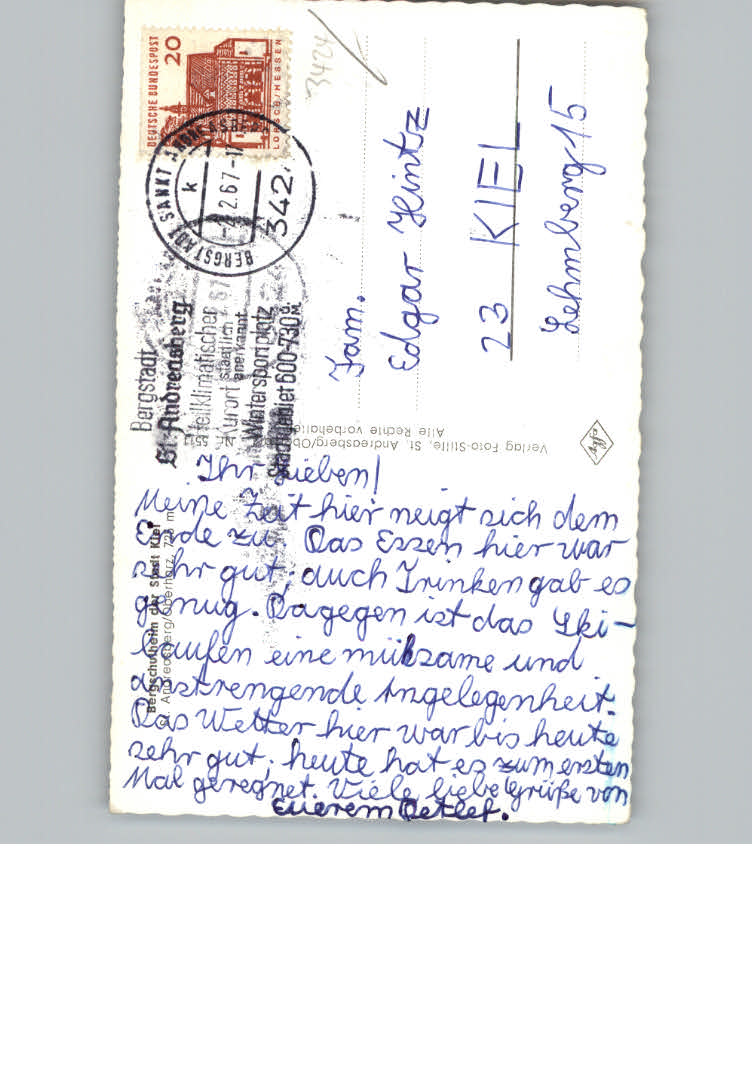 DEUTSCHE BUNDESPOST
20
LORSCH/HESSEN
3424
BERGSTADT SANKT ANDREASBERG
k
2.2.67-17
342
Bergstadt
St. Andreasberg
Heilklimatischer
Kurort staatlich
anerkannt
Wintersportplatz
Stadtgebiet 600-730 ü.M.
Fam.
Edgar Hintz
23 KIEL
Lehmberg 15
Verlag Foto-Stille, St. Andreasberg/Ob
Alle Rechte vorbehalten
Agfa
Bergschulheim der Stadt Kiel
Andreasberg/Oberharz, 728 m
Ihr Lieben!
Meine Zeit hier neigt sich dem
Ende zu. Das Essen hier war
sehr gut, auch Trinken gab es
genug. Dagegen ist das Ski-
laufen eine mühsame und
anstrengende Angelegenheit.
Das Wetter hier war bis heute
sehr gut, heute hat es zum ersten
Mal geregnet. Viele liebe Grüße von
Euerem Detlef.